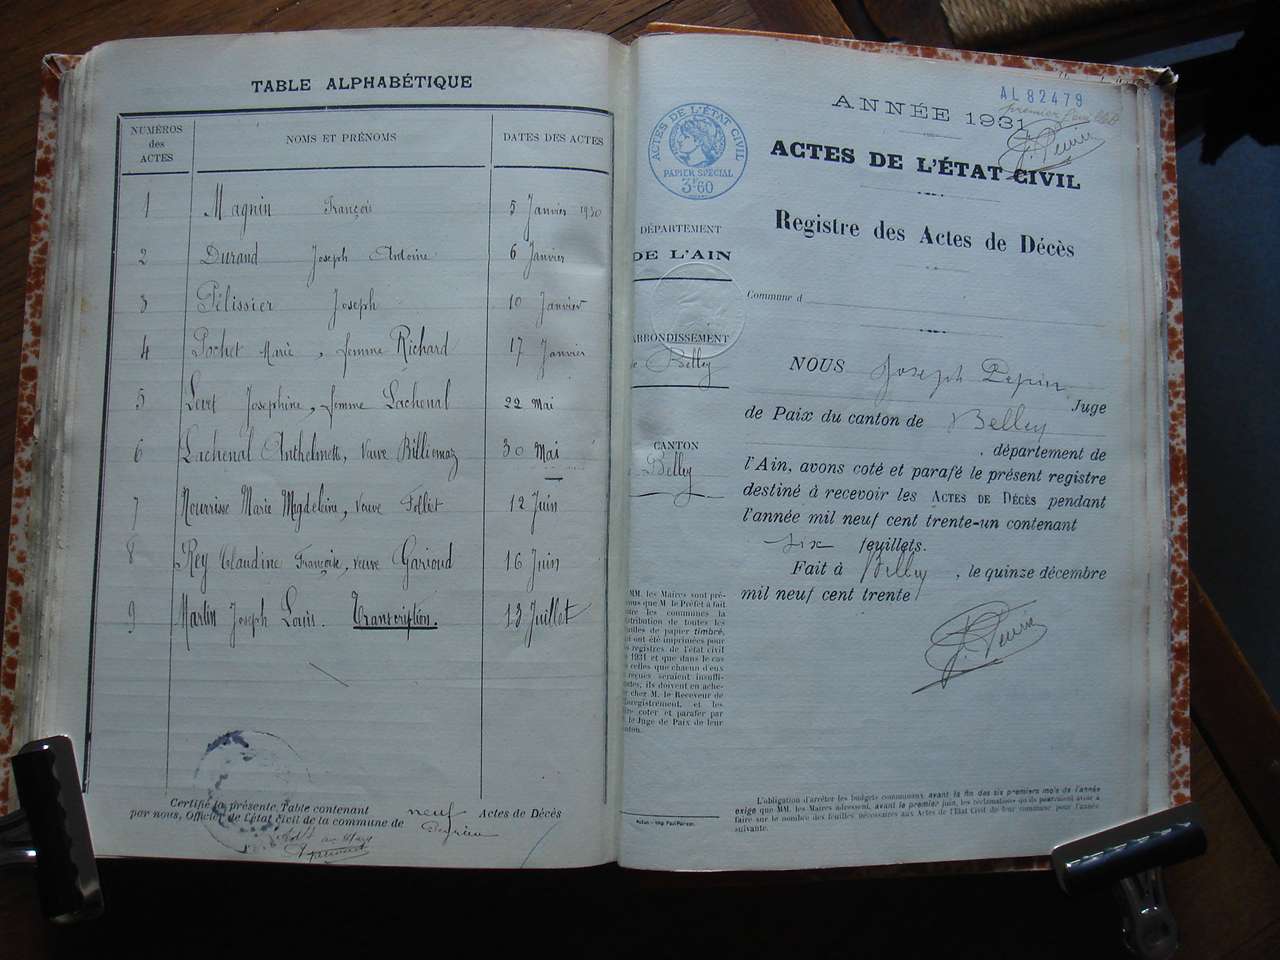 TABLE ALPHABÉTIQUE
NUMÉROS des ACTES NOMS ET PRÉNOMS DATES DES ACTES
1 Magnin François 5 Janvier 1930
2 Durand Joseph Antoine 6 Janvier
3 Pélissier Joseph 10 Janvier
4 Pochet Marie, femme Richard 17 Janvier
5 Levet Josephine, femme Lachenal 22 Mai
6 Lachenal Anthelmette, Veuve Billiemaz 30 Mai
7 Nourrisse Marie Magdeleine, Veuve Folliet 12 Juin
8 Rey Claudine Françoise, veuve Garioud 16 Juin
9 Martin Joseph Louis. Transcription. 13 Juillet
Certifié la présente Table contenant neuf Actes de Décès
par nous, Officier de l'état civil de la commune de Peyrieu
AL 82479
ANNÉE 1931
ACTES DE L'ÉTAT CIVIL
PAPIER SPÉCIAL
3F60
ACTES DE L'ÉTAT CIVIL
Registre des Actes de Décès
DÉPARTEMENT
DE L'AIN
Commune d
ARRONDISSEMENT
Belley
NOUS Joseph Pepin
Juge
de Paix du canton de Belley
, département de
CANTON
Belley
l'Ain, avons coté et parafé le présent registre
destiné à recevoir les ACTES DE DÉCÈS pendant
l'année mil neuf cent trente-un contenant
six feuillets.
Fait à Belley, le quinze décembre
mil neuf cent trente
MM. les Maires sont pré-
nus que M. le Préfet a fait
les communes la
distribution de toutes les
feuilles de papier timbré,
ont été imprimées pour
registres de l'état civil
1931 et que dans le cas
celles que chacun d'eux
reçues seraient insuffi-
, ils doivent en ache-
chez M. le Receveur de
, et les
coter et parafer par
le Juge de Paix de leur
canton.
L'obligation d'arrêter les budgets communaux avant la fin des six premiers mois de l'année
exige que MM. les Maires adressent, avant le premier juin, les déclarations qu'ils pourraient avoir à
faire sur le nombre des feuilles nécessaires aux Actes de l'État Civil de leur commune pour l'année
suivante.